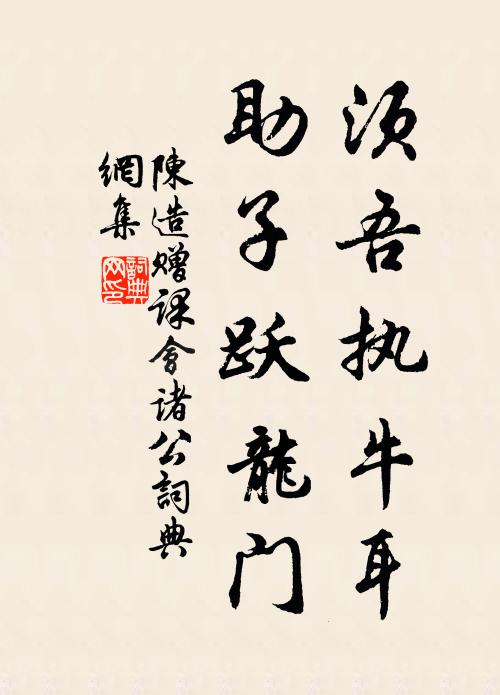 须吾执牛耳
助子跃龍门
陳造赠课會诸公詞典
網集
詞典
网印